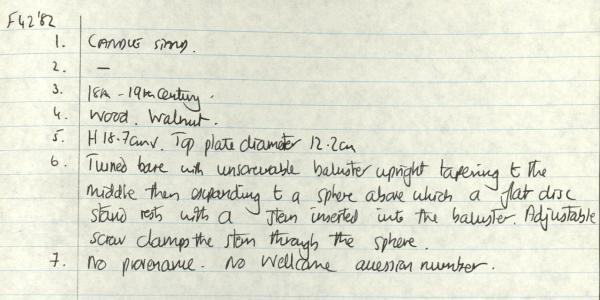 F42'82
1. CANDLE STAND.
2. —
3. 18th - 19th Century.
4. Wood. Walnut.
5. H 18.7cm. Top plate diameter 12.2cm
6. Turned base with unscrewable baluster upright tapering to the
middle then expanding to a sphere above which a flat disc
stand rests with a stem inserted into the baluster. Adjustable
screw clamps the stem through the sphere.
7. No provenance. No Wellcome accession number.